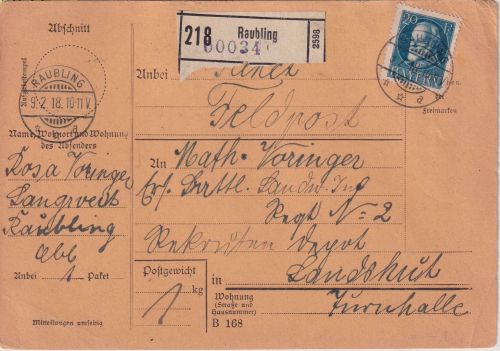 Abschnitt
Aufgabestempel
RAUBLING
9.2.18.10-11V.
Name, Wohnort und Wohnung
des Absenders
Rosa Voringer
Langweit
Raubling
Obb
Anbei 1 Paket
Mitteilungen umseitig
218 Raubling
00034
2598
20 PF
BAYERN
Freimarken
Anbei Paket
Feldpost
An Math. Voringer
Ers. Battl. Landw. Inf
Regt No 2
Rekruten Depot
in Landshut
Wohnung
(Straße und
Hausnummer)
Turnhalle
B 168
Postgewicht
1 kg